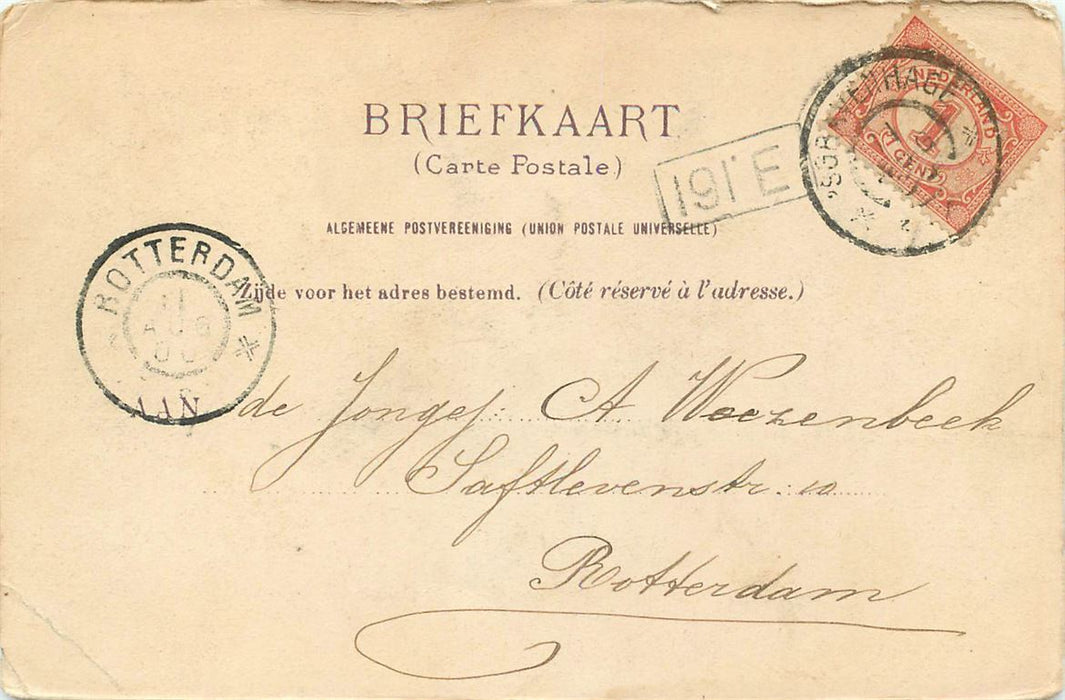 BRIEFKAART
(Carte Postale)
ALGEMEENE POSTVEREENIGING (UNION POSTALE UNIVERSELLE)
Zijde voor het adres bestemd. (Côté réservé à l'adresse.)
NEDERLAND
1
CENT
'SGRAVENHAGE
191 E
ROTTERDAM
11
AUG
de Jongej: A Weezenbeek
Saftlevenstr: 10
Rotterdam